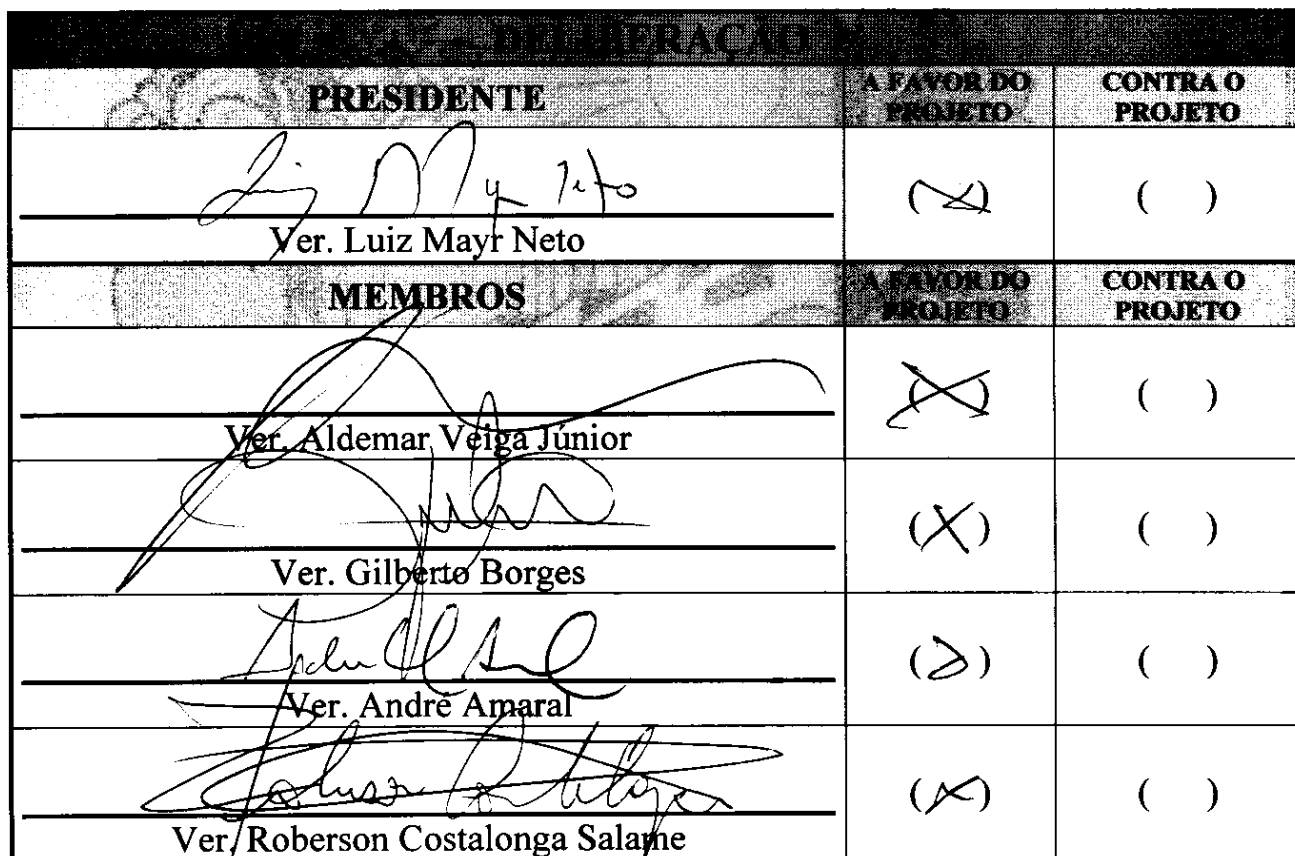 DELIBERAÇÃO
PRESIDENTE
A FAVOR DO PROJETO
CONTRA O PROJETO
( X ) ( )
Ver. Luiz Mayr Neto
MEMBROS
A FAVOR DO PROJETO
CONTRA O PROJETO
(X) ( )
Ver. Aldemar Veiga Júnior
(X) ( )
Ver. Gilberto Borges
(X) ( )
Ver. André Amaral
(X) ( )
Ver. Roberson Costalonga Salame